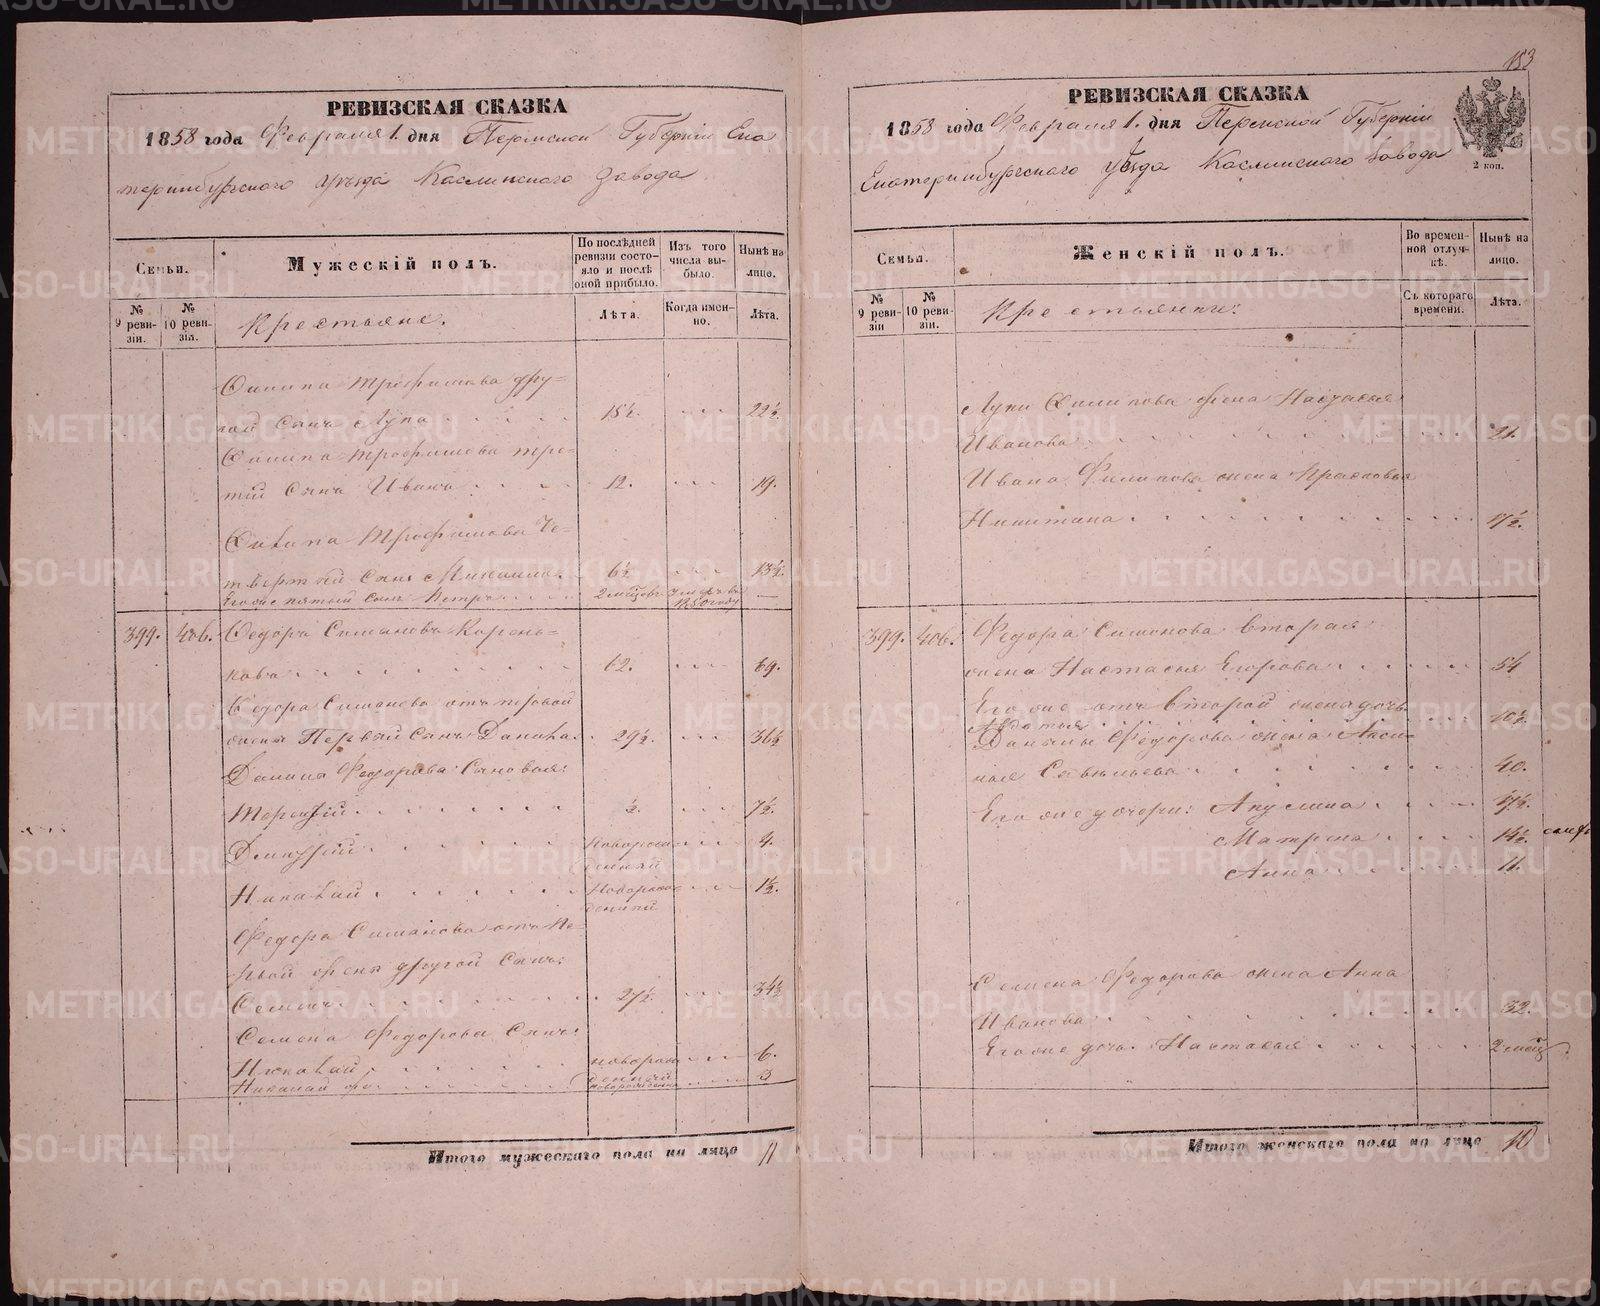 153
РЕВИЗСКАЯ СКАЗКА
1858 года Февраля 1. дня Пермской Губернiи Ека
теринбургского уѣзда Каслинского Завода
Семьи.
Мужескiй полъ.
По послѣдней ревизiи состояло и послѣ оной прибыло.
Изъ того числа выбыло.
Нынѣ на лицо.
№ 9 ревизiи.
№ 10 ревизiя.
Крестьяне.
Лѣта.
Когда именно.
Лѣта.
Филипа Трофимова дру=
гой Сынъ Лупа 15½. 22½.
Филипа Трофимова тре=
тiй Сынъ Иванъ 12. 19.
Филипа Трофимова Че=
твертый Сынъ Михаила 6½ 13½.
Его же пятый Сынъ Петръ
399. 406. Федоръ Симановъ Корень=
ковъ 62. 69.
Федора Симанова отъ первой
жены Первый Сынъ Данила 29½. 36½
Данила Федорова Сыновья:
Терентiй ½. 7½.
Дмитрiй Новорож 4.
денный
Николай Новорож 1½.
денный
Федора Симанова отъ пе=
рвой жены другой Сынъ:
Семенъ 27½. 34½
Семена Федорова Сынъ:
Николай новорож 6.
денный
Николай новорожденны 3
Итого мужескаго пола на лицо 11
РЕВИЗСКАЯ СКАЗКА
1858 года Февраля 1. дня Пермской Губернiи
Екатеринбургского уѣзда Каслинского Завода
2 коп.
Семьи.
Женскiй полъ.
Во временной отлучкѣ.
Нынѣ на лицо.
№ 9 ревизiи
№ 10 ревизiи.
Крестьянки:
Съ котораго времени.
Лѣта.
Лупы Филипова жена Настасья
Иванова 21.
Ивана Филипова жена Прасковья
Никитина 17½.
399. 406. Федора Симонова вторая
жена Настасья Егорова 54
Его же отъ второй жены дочь
Авдотья 10½.
Данилы Федорова жена Акси=
нья Савельева 40.
Его же дочери: Акулина 17½.
Матрена 14½.
Анна 11.
Семена Федорова жена Анна
Иванова 32.
Его же дочь Настасья 2 мѣсяц.
Итого женскаго пола на лицо 10
METRIKI.GASO-URAL.RU